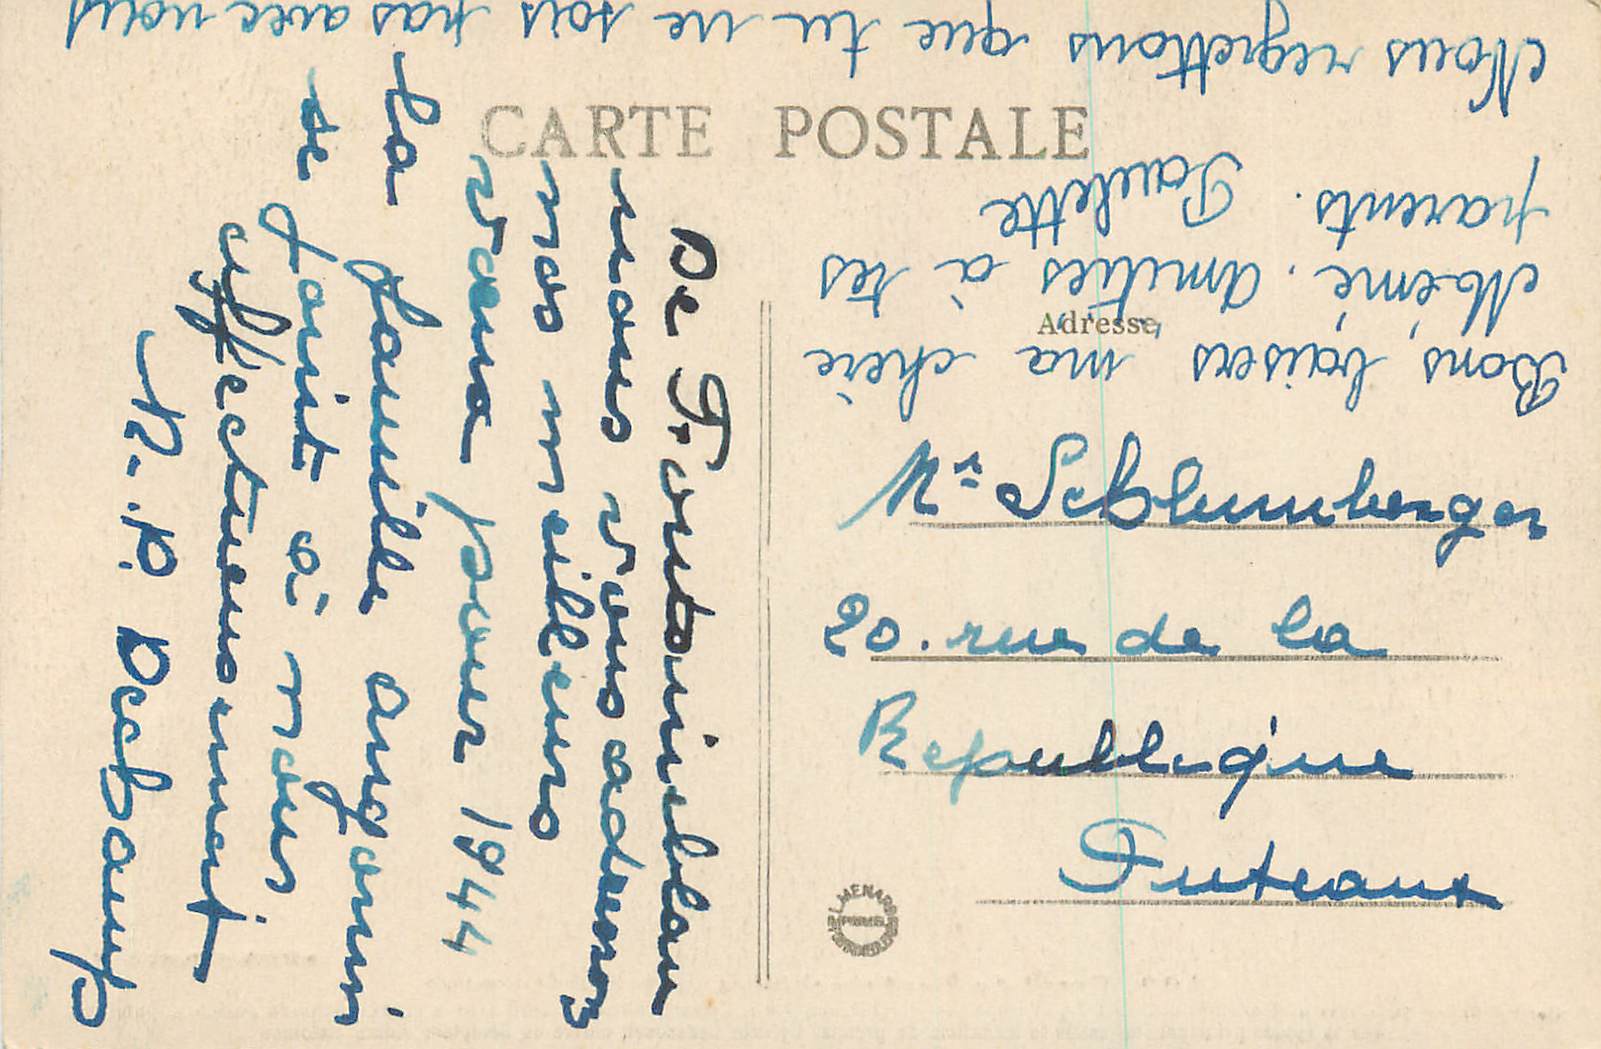 CARTE POSTALE
De Fontainebleau
nous vous adressons
nos meilleurs
vœux pour 1944
La famille Angonin
se joint à nous
affectueusement
M. P. Dechamp
Adresse
Mr Schlumberger
20. rue de la
Republique
Puteaux
Bons baisers ma chère
Mémé. Amitiés à tes
parents. Paulette
Nous regrettons que tu ne sois pas avec nous
MENARD